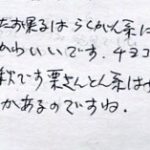 たお菓るは らくがん系に
かわいいです. チョコ
秋です 栗きんとん系は
かあるのですね.